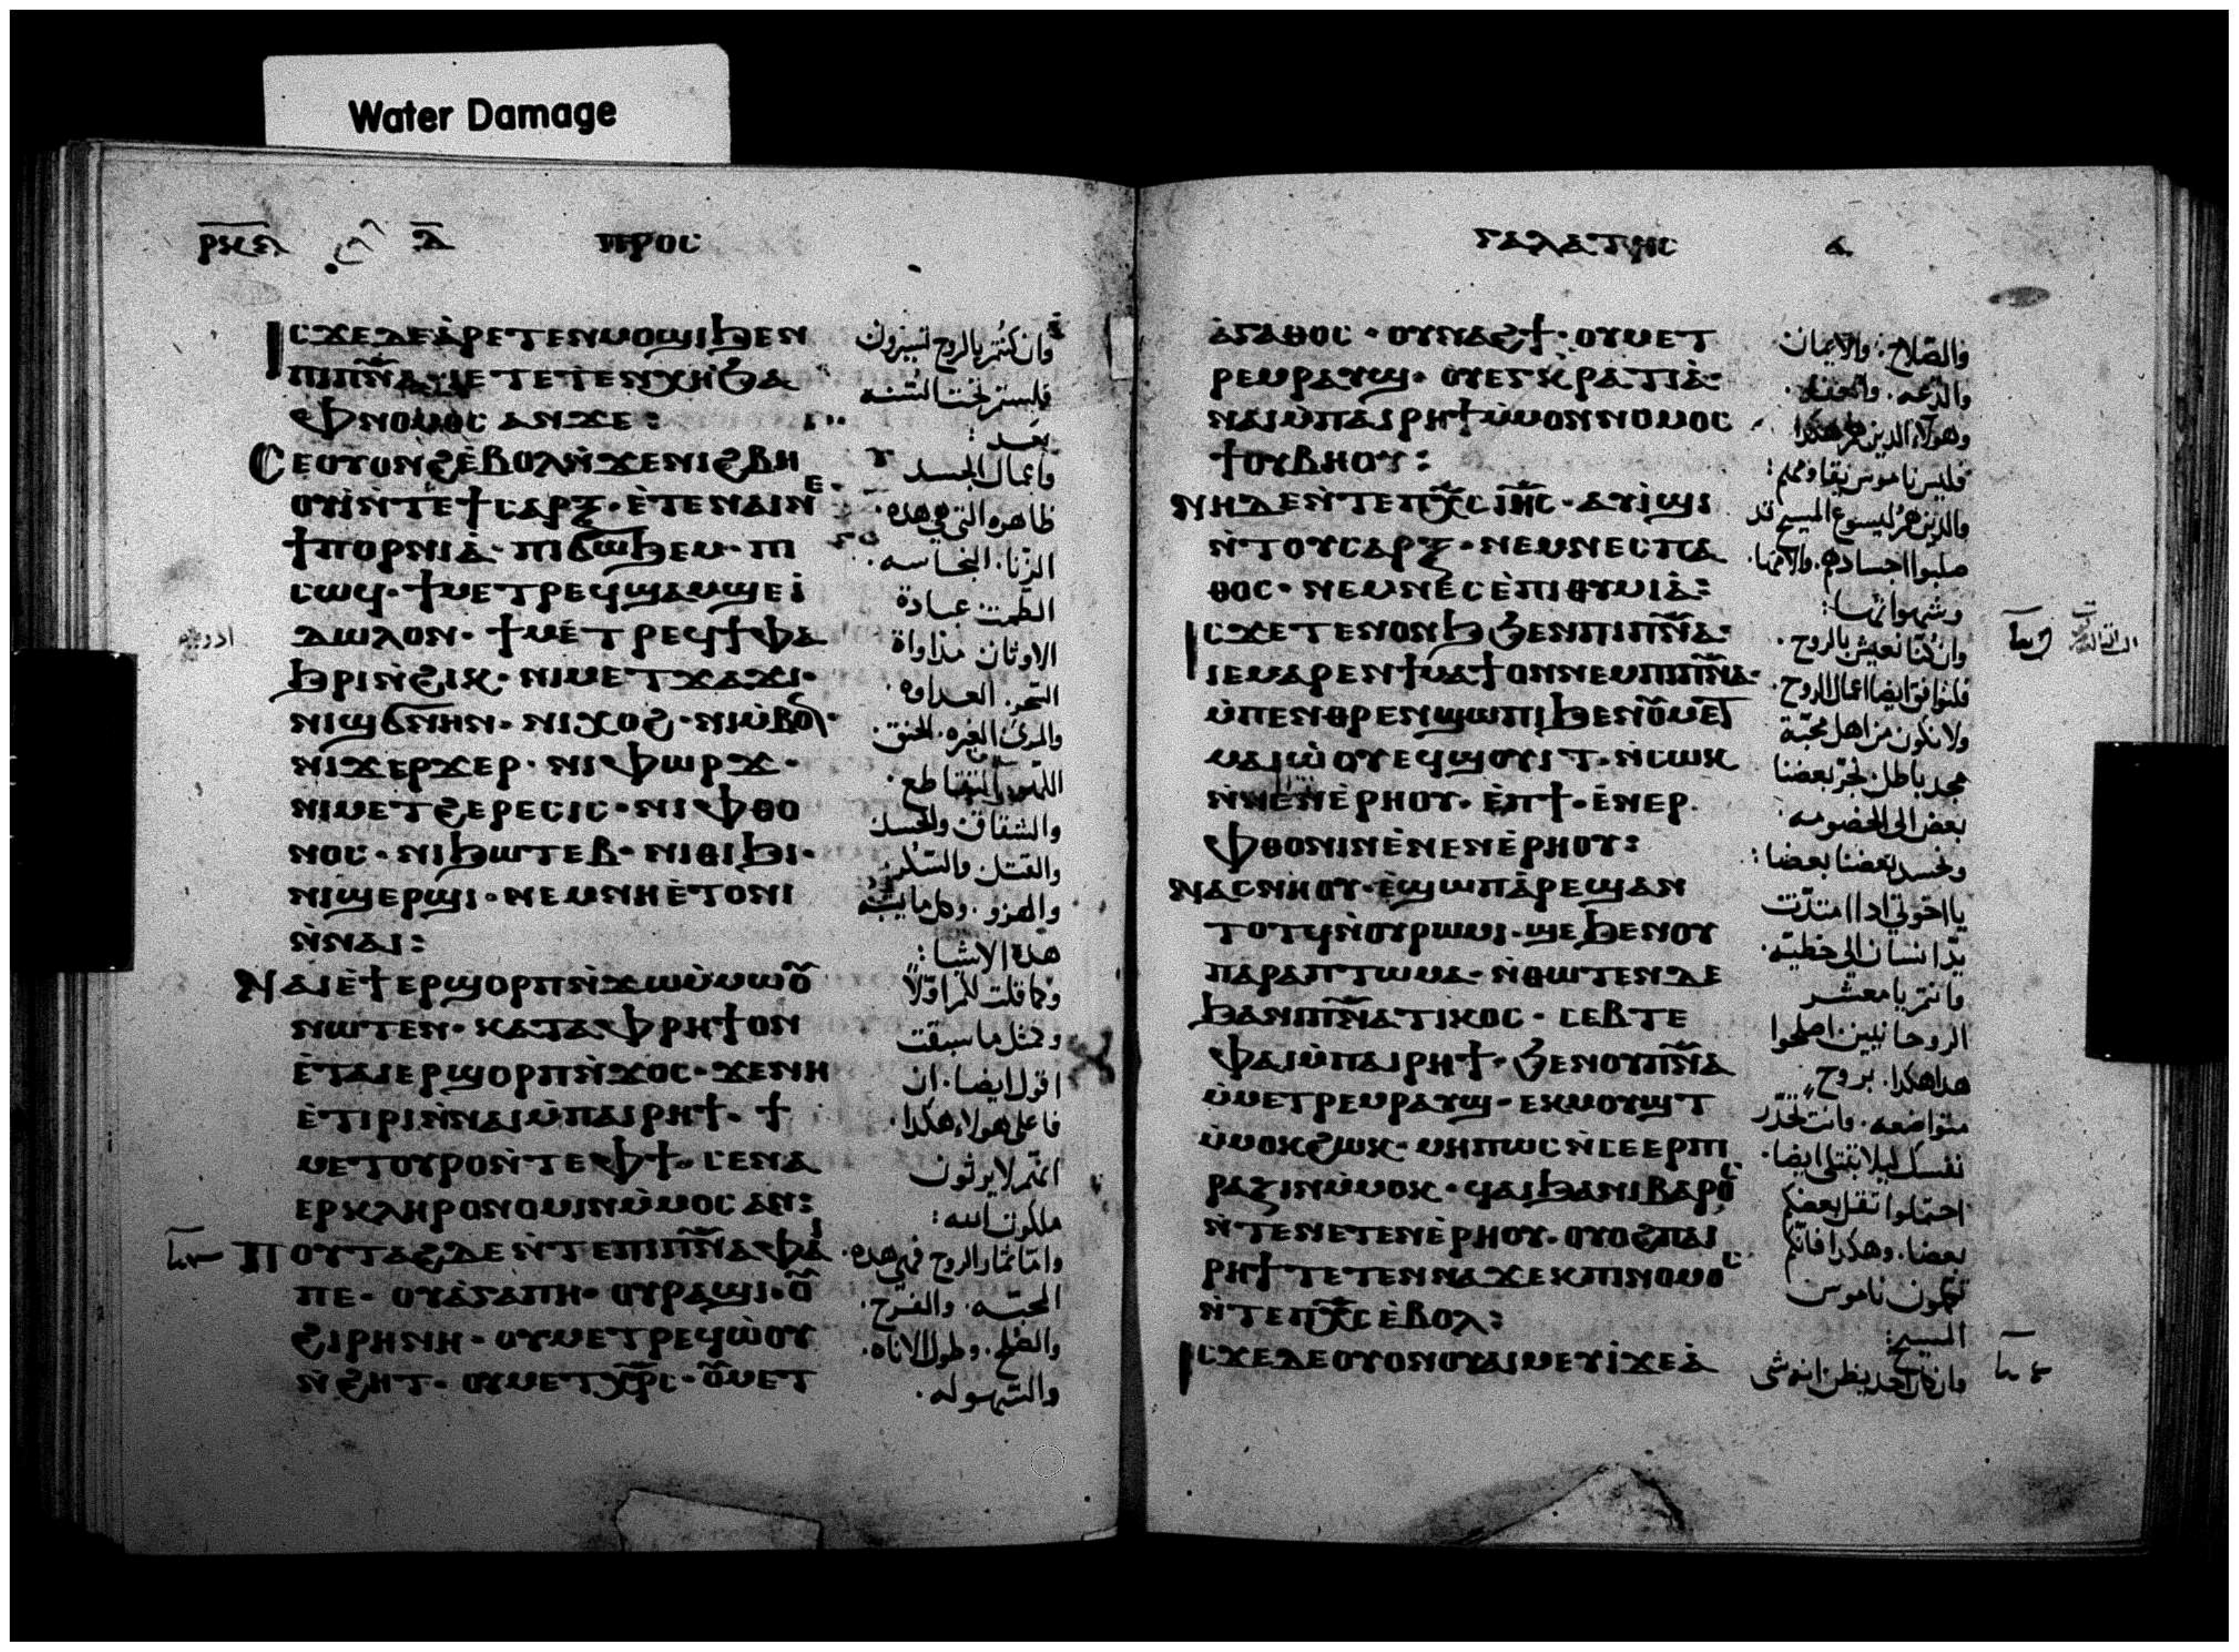 Water Damage
ⲣⲕⲋ ⲇ̅ ⲡⲣⲟⲥ
ⲓⲥϫⲉ ⲇⲉ ⲁ̀ⲣⲉⲧⲉⲛⲙⲟϣⲓ ϧⲉⲛ
ⲡⲓⲡⲛ̅ⲁ̅· ⲓⲉ ⲧⲉⲧⲉⲛⲭⲏ ϧⲁ
ⲫⲛⲟⲙⲟⲥ ⲁⲛ ϫⲉ:
ⲥⲉⲟⲩⲟⲛϩ ⲉ̀ⲃⲟⲗ ⲛ̀ϫⲉ ⲛⲓϩⲃⲏ
ⲟⲩⲓ̀ ⲛ̀ⲧⲉ ϯⲥⲁⲣⲝ· ⲉ̀ⲧⲉ ⲛⲁⲓ ⲛⲉ·
ϯⲡⲟⲣⲛⲓⲁ̀· ⲡⲓϭⲱϧⲉⲙ· ⲡⲓ
ⲥⲱϥ· ϯⲙⲉⲧⲣⲉϥϣⲁⲙϣⲉ ⲓ̀
ⲇⲱⲗⲟⲛ· ϯⲙⲉⲧⲣⲉϥϯⲫⲁ
ϧⲣⲓ ⲛ̀ϩⲓⲕ· ⲛⲓⲙⲉⲧϫⲁϫⲓ·
ⲛⲓϣϭⲛⲏⲛ· ⲛⲓⲭⲟϩ· ⲛⲓⲙ̀ⲃⲟⲛ·
ⲛⲓϫⲉⲣϫⲉⲣ· ⲛⲓⲫⲱⲣϫ·
ⲛⲓⲙⲉⲧϩⲉⲣⲉⲥⲓⲥ· ⲛⲓⲫⲑⲟ
ⲛⲟⲥ· ⲛⲓϧⲱⲧⲉⲃ· ⲛⲓⲑⲓϧⲓ·
ⲛⲓϣⲉⲣϣⲓ· ⲛⲉⲙ ⲛⲏ ⲉ̀ⲧⲟⲛⲓ
ⲛ̀ⲛⲁⲓ:
ⲛⲁⲓ ⲉ̀ϯⲉⲣϣⲟⲣⲡ ⲛ̀ϫⲱ ⲙ̀ⲙⲱⲟⲩ
ⲛⲱⲧⲉⲛ· ⲕⲁⲧⲁ ⲫⲣⲏϯ ⲟⲛ
ⲉ̀ⲧⲁⲓⲉⲣϣⲟⲣⲡ ⲛ̀ϫⲟⲥ· ϫⲉ ⲛⲏ
ⲉ̀ⲧⲓⲣⲓ ⲛ̀ⲛⲁⲓ ⲙ̀ⲡⲁⲓⲣⲏϯ· ϯ
ⲙⲉⲧⲟⲩⲣⲟ ⲛ̀ⲧⲉ ⲫϯ· ⲥⲉⲛⲁ
ⲉⲣⲕⲗⲏⲣⲟⲛⲟⲙⲓⲛ ⲙ̀ⲙⲟⲥ ⲁⲛ:
ⲡⲟⲩⲧⲁϩ ⲇⲉ ⲛ̀ⲧⲉ ⲡⲓⲡⲛ̅ⲁ̅ ⲫⲁⲓ
ⲡⲉ· ⲟⲩⲁ̀ⲅⲁⲡⲏ· ⲟⲩⲣⲁϣⲓ· ⲟⲩ
ϩⲓⲣⲏⲛⲏ· ⲟⲩⲙⲉⲧⲣⲉϥⲱ̀ⲟⲩ
ⲛ̀ϩⲏⲧ· ⲟⲩⲙⲉⲧⲭ̅ⲣ̅ⲥ· ⲟⲩⲙⲉⲧ
وان كنتم بالروح تسيرون
فلستم تحت السنه
بعد:
واعمال الجسد
ظاهره التي هي هذه·
الزنا· النجاسه·
الطمث· عبادة
الاوثان· مداواة
السحر· العداوه·
والمرى· الغيره· الحنق·
التقاطع·
والشقاق والحسد
والقتل والسكر
والهزو· وكل ما يشبه
هذه الاشيا:
وكما قلت لكم اولاً
ومثل ما سبقت
اقول ايضا· ان
فاعلي هولاء هكذا·
انهم لا يرثون
ملكوت الله:
واما ثمار الروح فهي هذه·
المحبه· والفرح·
والصلح· وطول الاناه·
والسهوله·
ⲅⲁⲗⲁⲧⲏⲥ
ⲁ̀ⲅⲁⲑⲟⲥ· ⲟⲩⲛⲁϩϯ· ⲟⲩⲙⲉⲧ
ⲣⲉⲙⲣⲁⲩϣ· ⲟⲩⲉⲅⲕⲣⲁⲧⲓⲁ̀·
ⲛⲁⲓ ⲙ̀ⲡⲁⲓⲣⲏϯ ⲙ̀ⲙⲟⲛ ⲛⲟⲙⲟⲥ
ϯ ⲟⲩⲃⲏⲟⲩ:
ⲛⲏ ⲇⲉ ⲛ̀ⲧⲉ ⲡⲭ̅ⲥ ⲓⲏ̅ⲥ· ⲁⲩⲓ̀ϣⲓ
ⲛ̀ⲧⲟⲩⲥⲁⲣⲝ· ⲛⲉⲙ ⲛⲉⲥⲡⲁ
ⲑⲟⲥ· ⲛⲉⲙ ⲛⲉⲥⲉ̀ⲡⲓⲑⲩⲙⲓⲁ̀:
ⲓⲥϫⲉ ⲧⲉⲛⲟⲛϧ ϧⲉⲛ ⲡⲓⲡⲛ̅ⲁ̅:
ⲓⲉ ⲙⲁⲣⲉⲛϯⲙⲁϯ ⲟⲛ ⲛⲉⲙ ⲡⲓⲡⲛ̅ⲁ̅·
ⲙ̀ⲡⲉⲛⲑⲣⲉⲛϣⲱⲡⲓ ϧⲉⲛ ⲟⲩⲙⲉⲧ
ⲙⲁⲓⲱ̀ⲟⲩ ⲉϥϣⲟⲩⲓⲧ· ⲛ̀ⲥⲱⲕ
ⲛ̀ⲛⲉⲛⲉ̀ⲣⲏⲟⲩ· ⲉ̀ⲡϯ· ⲉ̀ⲛⲉⲣ
ⲫⲑⲟⲛⲓⲛ ⲉ̀ⲛⲉⲛⲉ̀ⲣⲏⲟⲩ:
ⲛⲁⲥⲛⲏⲟⲩ· ⲉ̀ϣⲱⲡ ⲁ̀ⲣⲉϣⲁⲛ
ⲧⲟⲧϥ ⲛ̀ⲟⲩⲣⲱⲙⲓ· ϣⲉ ϧⲉⲛ ⲟⲩ
ⲡⲁⲣⲁⲡⲧⲱⲙⲁ· ⲛ̀ⲑⲱⲧⲉⲛ ⲇⲉ
ϧⲁⲛⲡⲛ̅ⲁ̅ⲧⲓⲕⲟⲥ· ⲥⲉⲃⲧⲉ
ⲫⲁⲓ ⲙ̀ⲡⲁⲓⲣⲏϯ· ϧⲉⲛ ⲟⲩⲡⲛ̅ⲁ̅
ⲙ̀ⲙⲉⲧⲣⲉⲙⲣⲁⲩϣ· ⲉⲕⲙⲟⲩϣⲧ
ⲙ̀ⲙⲟⲕ ϩⲱⲕ· ⲙⲏⲡⲱⲥ ⲛ̀ⲥⲉⲉⲣⲡⲓ
ⲣⲁⲍⲓⲛ ⲙ̀ⲙⲟⲕ· ϥⲁⲓ ϧⲁ ⲛⲓⲃⲁⲣⲟⲥ
ⲛ̀ⲧⲉ ⲛⲉⲧⲉⲛⲉ̀ⲣⲏⲟⲩ· ⲟⲩⲟϩ ⲡⲁⲓ
ⲣⲏϯ ⲧⲉⲧⲉⲛⲛⲁϫⲉⲕ ⲡⲓⲛⲟⲙⲟⲥ
ⲛ̀ⲧⲉ ⲡⲭ̅ⲥ ⲉ̀ⲃⲟⲗ:
ⲓⲥϫⲉ ⲇⲉ ⲟⲩⲟⲛ ⲟⲩⲁⲓ ⲙⲉⲩⲓ̀ ϫⲉ ⲁ̀
والصلاح· والايمان·
والدعه· والعفاف·
وهولاء الذين هم هكذا
فليس ناموس يقاومهم:
والذين هم ليسوع المسيح قد
صلبوا اجسادهم· والامها·
وشهواتها:
وان كنا نعيش بالروح·
فلنوافق ايضا اعمال الروح·
ولا نكون من اهل محبة
مجد باطل· نجر بعضنا
بعض الى الخصومه·
ونحسد بعضنا بعضا:
يا اخوتي اذا امتدت
يد انسان الى خطية·
فانتم يا معشر
الروحانيين اصلحوا
هذا هكذا· بروح
متواضعه· وانت تحذر
نفسك ليلا تبتلى ايضا·
احتملوا ثقل بعضكم
بعضا· وهكذا فانكم
تكملون ناموس
المسيح:
وان كان احد يظن انه شى